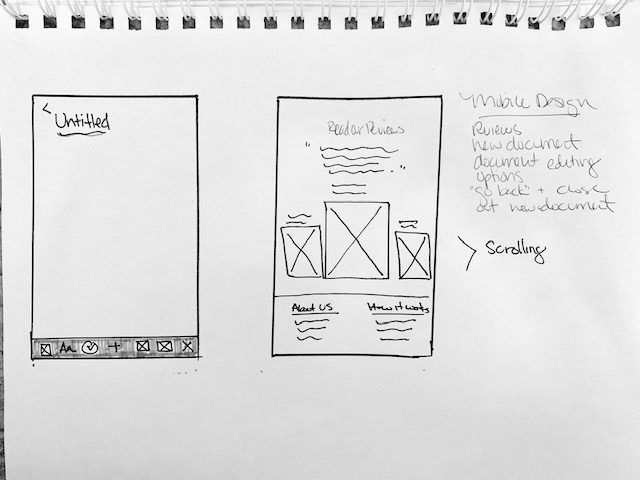 Untitled
Aa
Reader Reviews
About US
How it works
Mobile Design
Reviews
new document
document editing
options
"go back" + close
out new document
Scrolling